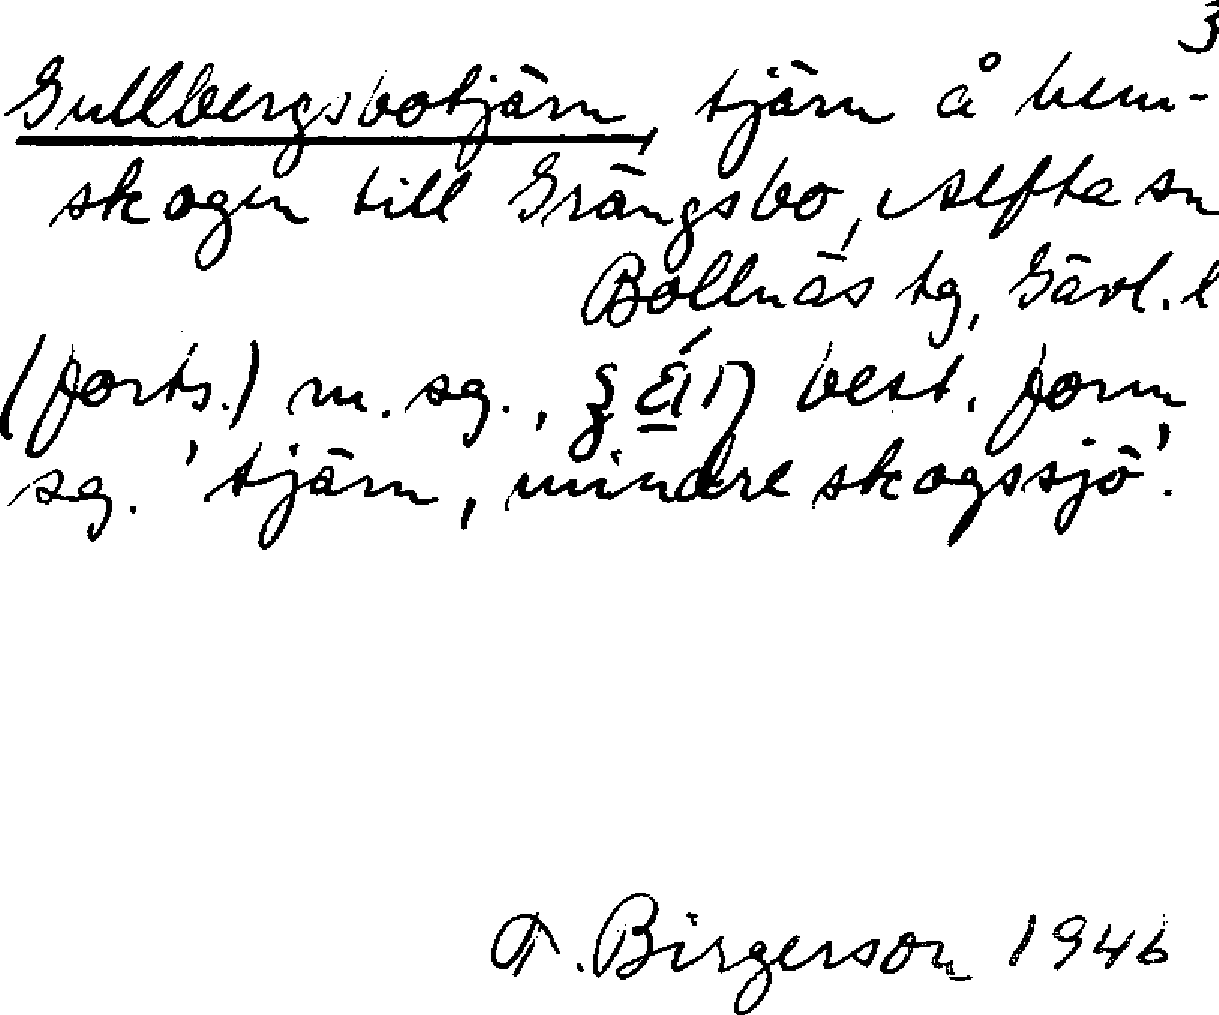 3
Gullbergsbotjärn, tjärn å hem-
skogen till Grängsbo, Alfta sn
Bollnäs tg, Gävl. l
(forts.) m. sg., best. form
sg. 'tjärn, mindre skogssjö'.
T. Birgerson 1946